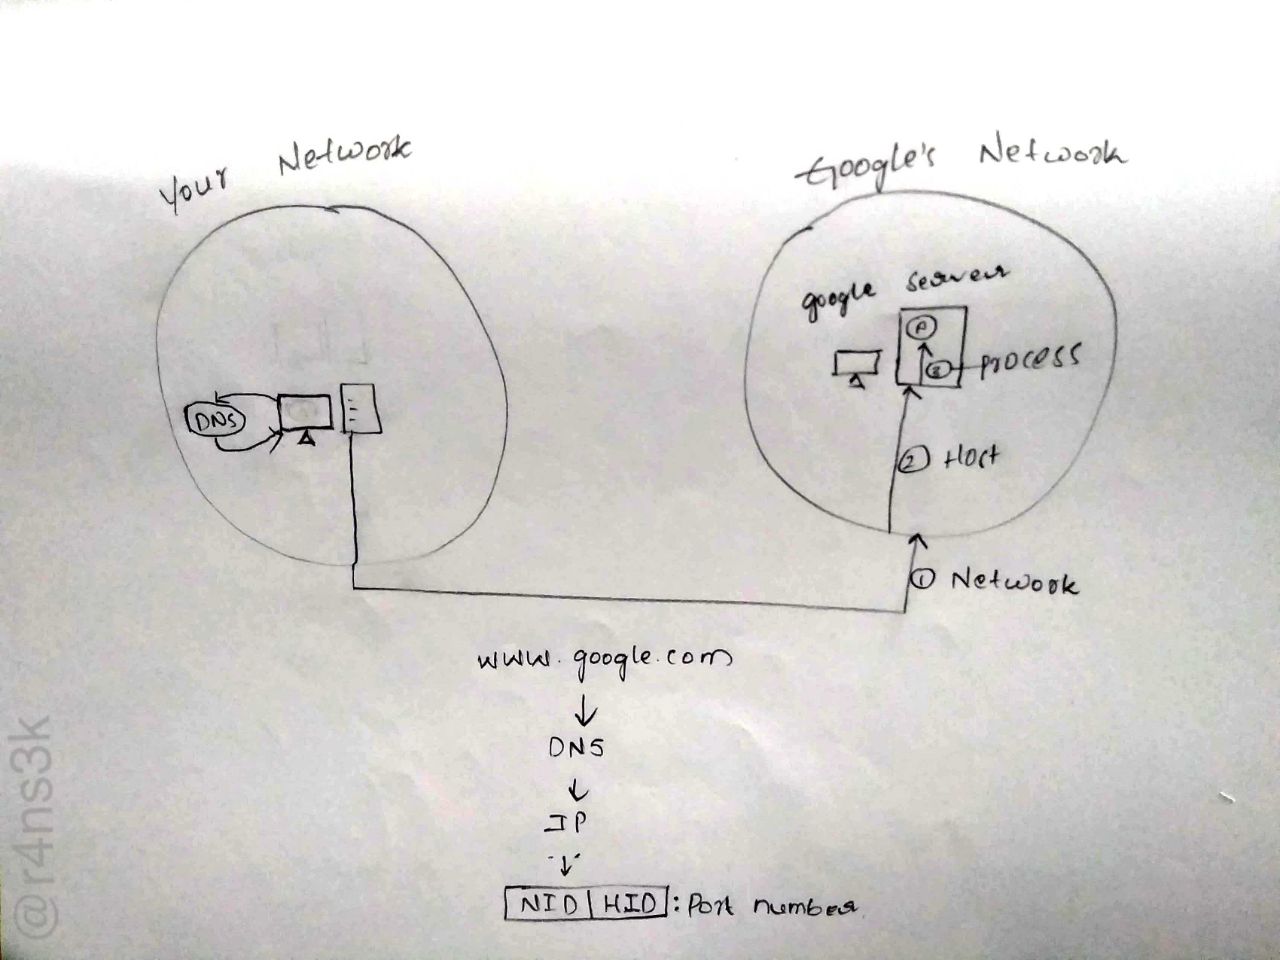 Your Network
Google's Network
google server
P
3 process
DNS
2 Host
1 Network
www.google.com
DNS
IP
NID HID : Port number
@r4ns3k